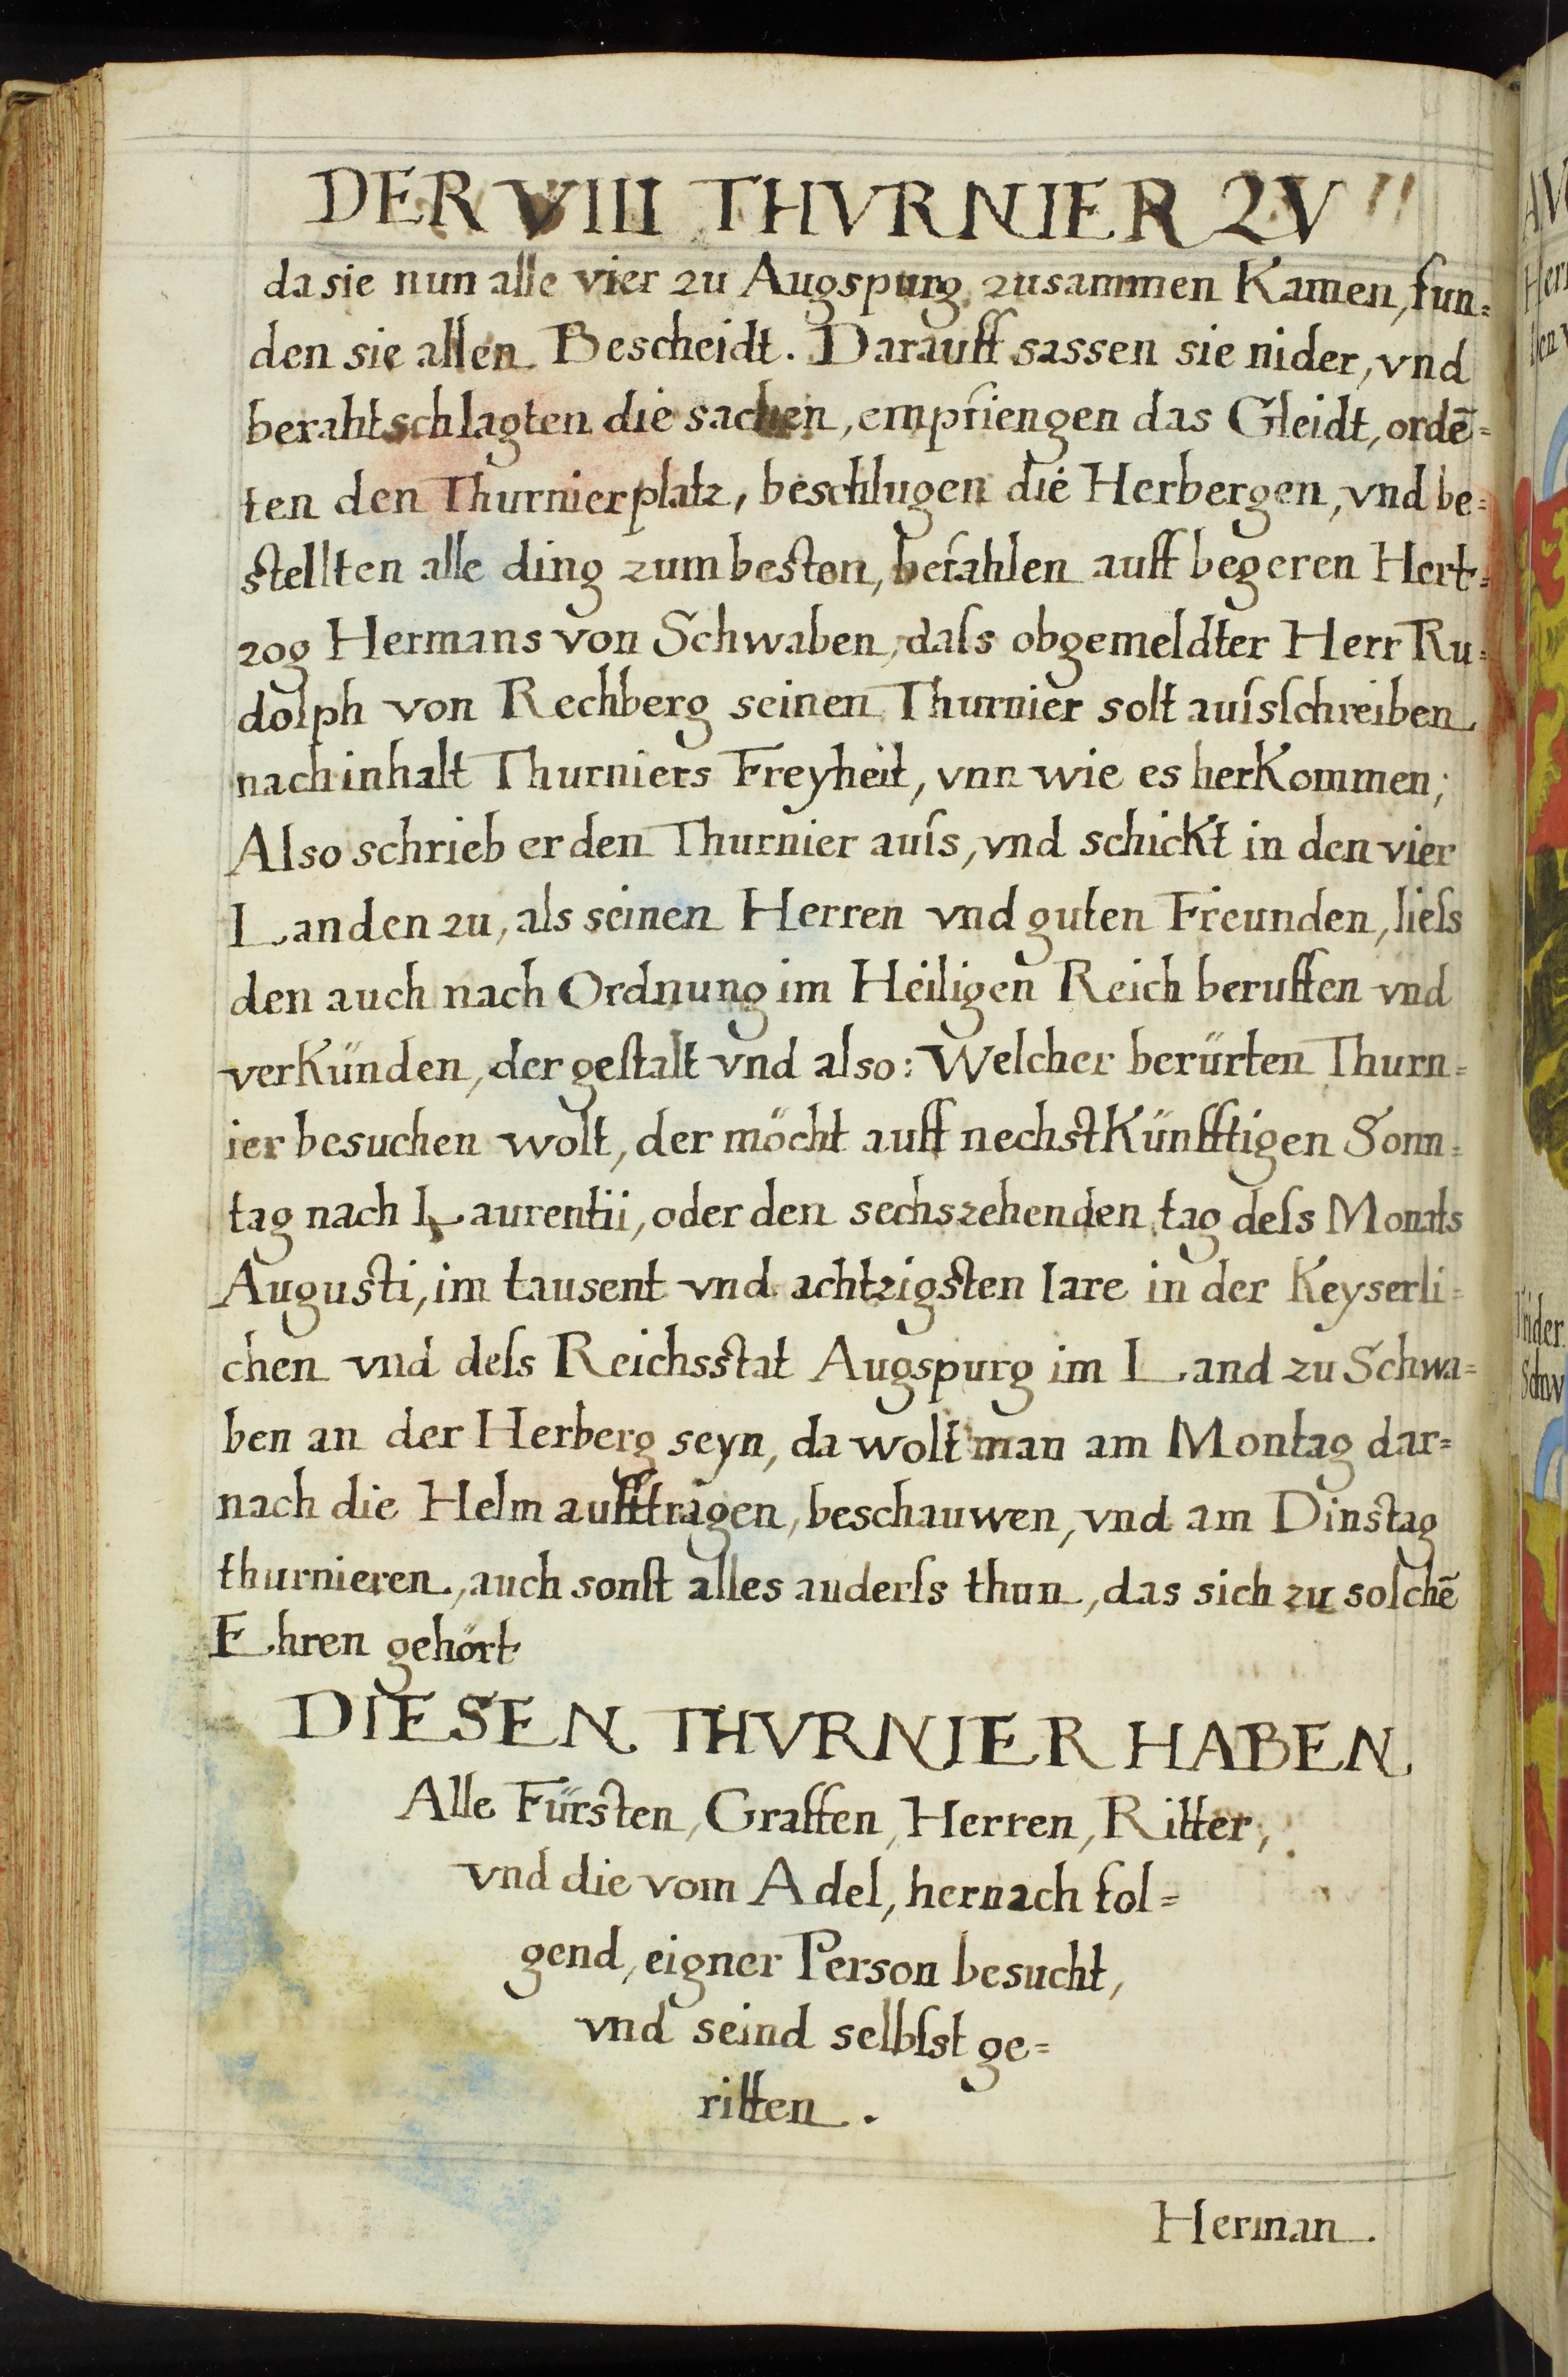 DER VIII THVRNIER ZV
da sie nun alle vier zu Augspurg zusammen Kamen, fun=
den sie allen Bescheidt. Darauff sassen sie nider, vnd
berahtschlagten die sachen, empfiengen das Gleidt, ordē=
ten den Thurnierplatz, beschlugen die Herbergen, vnd be=
stellten alle ding zum besten, befahlen auff begeren Hert=
zog Hermans von Schwaben, daſs obgemeldter Herr Ru=
dolph von Rechberg seinen Thurnier solt auſsſchreiben
nach inhalt Thurniers Freyheit, vnn wie es herKommen;
Also schrieb er den Thurnier auſs, vnd schickt in den vier
Landen zu, als seinen Herren vnd guten Freunden, lieſs
den auch nach Ordnung im Heiligen Reich beruffen vnd
verKünden, der gestalt vnd also: Welcher berürten Thurn=
ier besuchen wolt, der möcht auff nechstKünfftigen Sonn=
tag nach Laurentii, oder den sechszehenden tag deſs Monats
Augusti, im tausent vnd achtzigsten Iare in der Keyserli=
chen vnd deſs Reichsstat Augspurg im Land zu Schwa=
ben an der Herberg seyn, da wolt man am Montag dar=
nach die Helm aufftragen, beschauwen, vnd am Dinstag
thurnieren, auch sonst alles anderſs thun, das sich zu solchē
Ehren gehört
DIESEN THVRNIER HABEN
Alle Fürsten, Graffen, Herren, Ritter,
vnd die vom Adel, hernach fol=
gend, eigner Person besucht,
vnd seind selbſst ge=
ritten.
Herman.